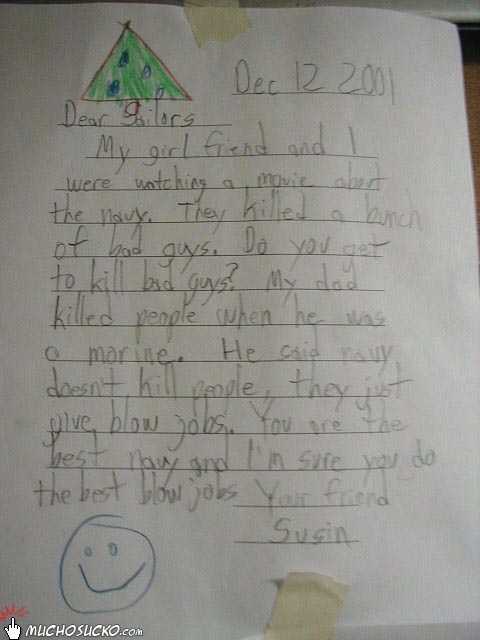 Dec 12 2001
Dear Sailors
My girl friend and I
were watching a movie about
the navy. They killed a bunch
of bad guys. Do you get
to kill bad guys? My dad
killed people when he was
a marine. He said navy
doesn't kill people, they just
give blow jobs. You are the
best navy and I'm sure you do
the best blow jobs Your friend
Susin
MUCHOSUCKO.com